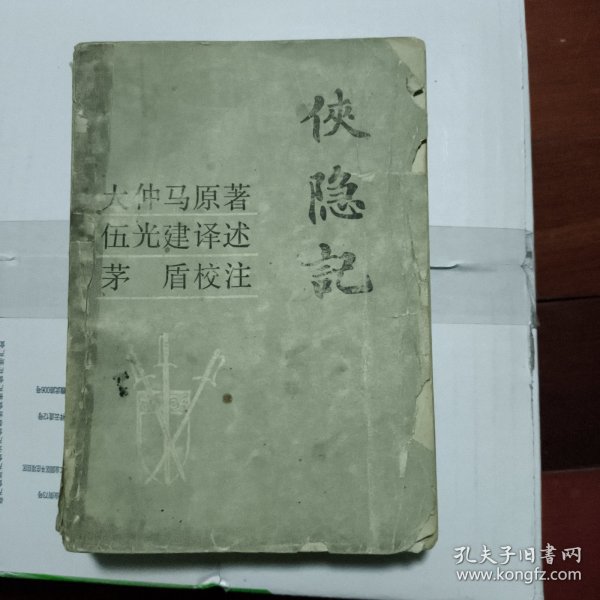 侠隐記
大仲马原著
伍光建译述
茅 盾校注
孔夫子旧书网
www.kongfz.com